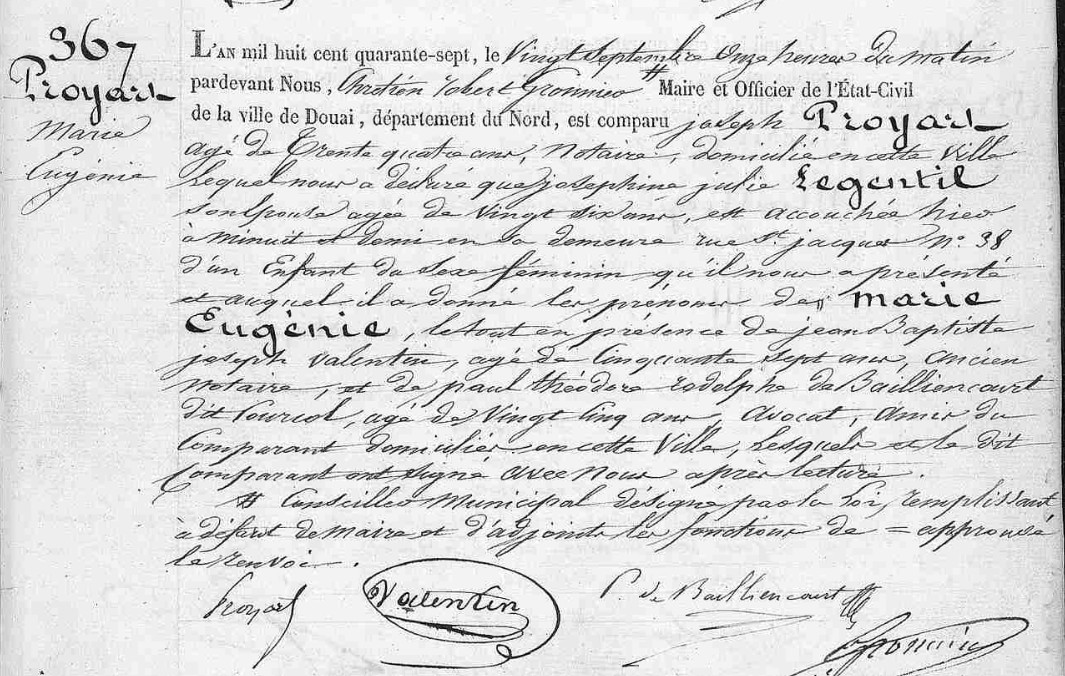 367
Proyart
Marie
Eugénie
L'AN mil huit cent quarante-sept, le Vingt Septembre Onze heures du matin
pardevant Nous, Chrétien Robert Gronnier # Maire et Officier de l'État-Civil
de la ville de Douai, département du Nord, est comparu joseph Proyart
agé de Trente quatre ans, Notaire, domicilié en cette Ville
Lequel nous a déclaré que josephine julie Legentil
son Epouse agée de Vingt six ans, est accouchée hier
à minuit et demi en sa demeure rue St jacques N° 38
d'un Enfant du Sexe féminin qu'il nous a présenté
et auquel il a donné les prénoms de, marie
Eugénie, le tout en présence de jean Baptiste
joseph Valentin, agé de Cinquante sept ans, ancien
Notaire, et de paul théodore rodolphe de Bailliencourt
dit Courcol, agé de Vingt Cinq ans, avocat, amis du
Comparant domiciliés en cette Ville, Lesquels et le dit
Comparant ont signé avec nous après lecture.
# Conseiller Municipal désigné par la loi, remplissant
à défaut de Maire et d'adjoints les fonctions de = approuvé
le renvoi.
Proyart
Valentin
P. de Bailliencourt
Gronnier